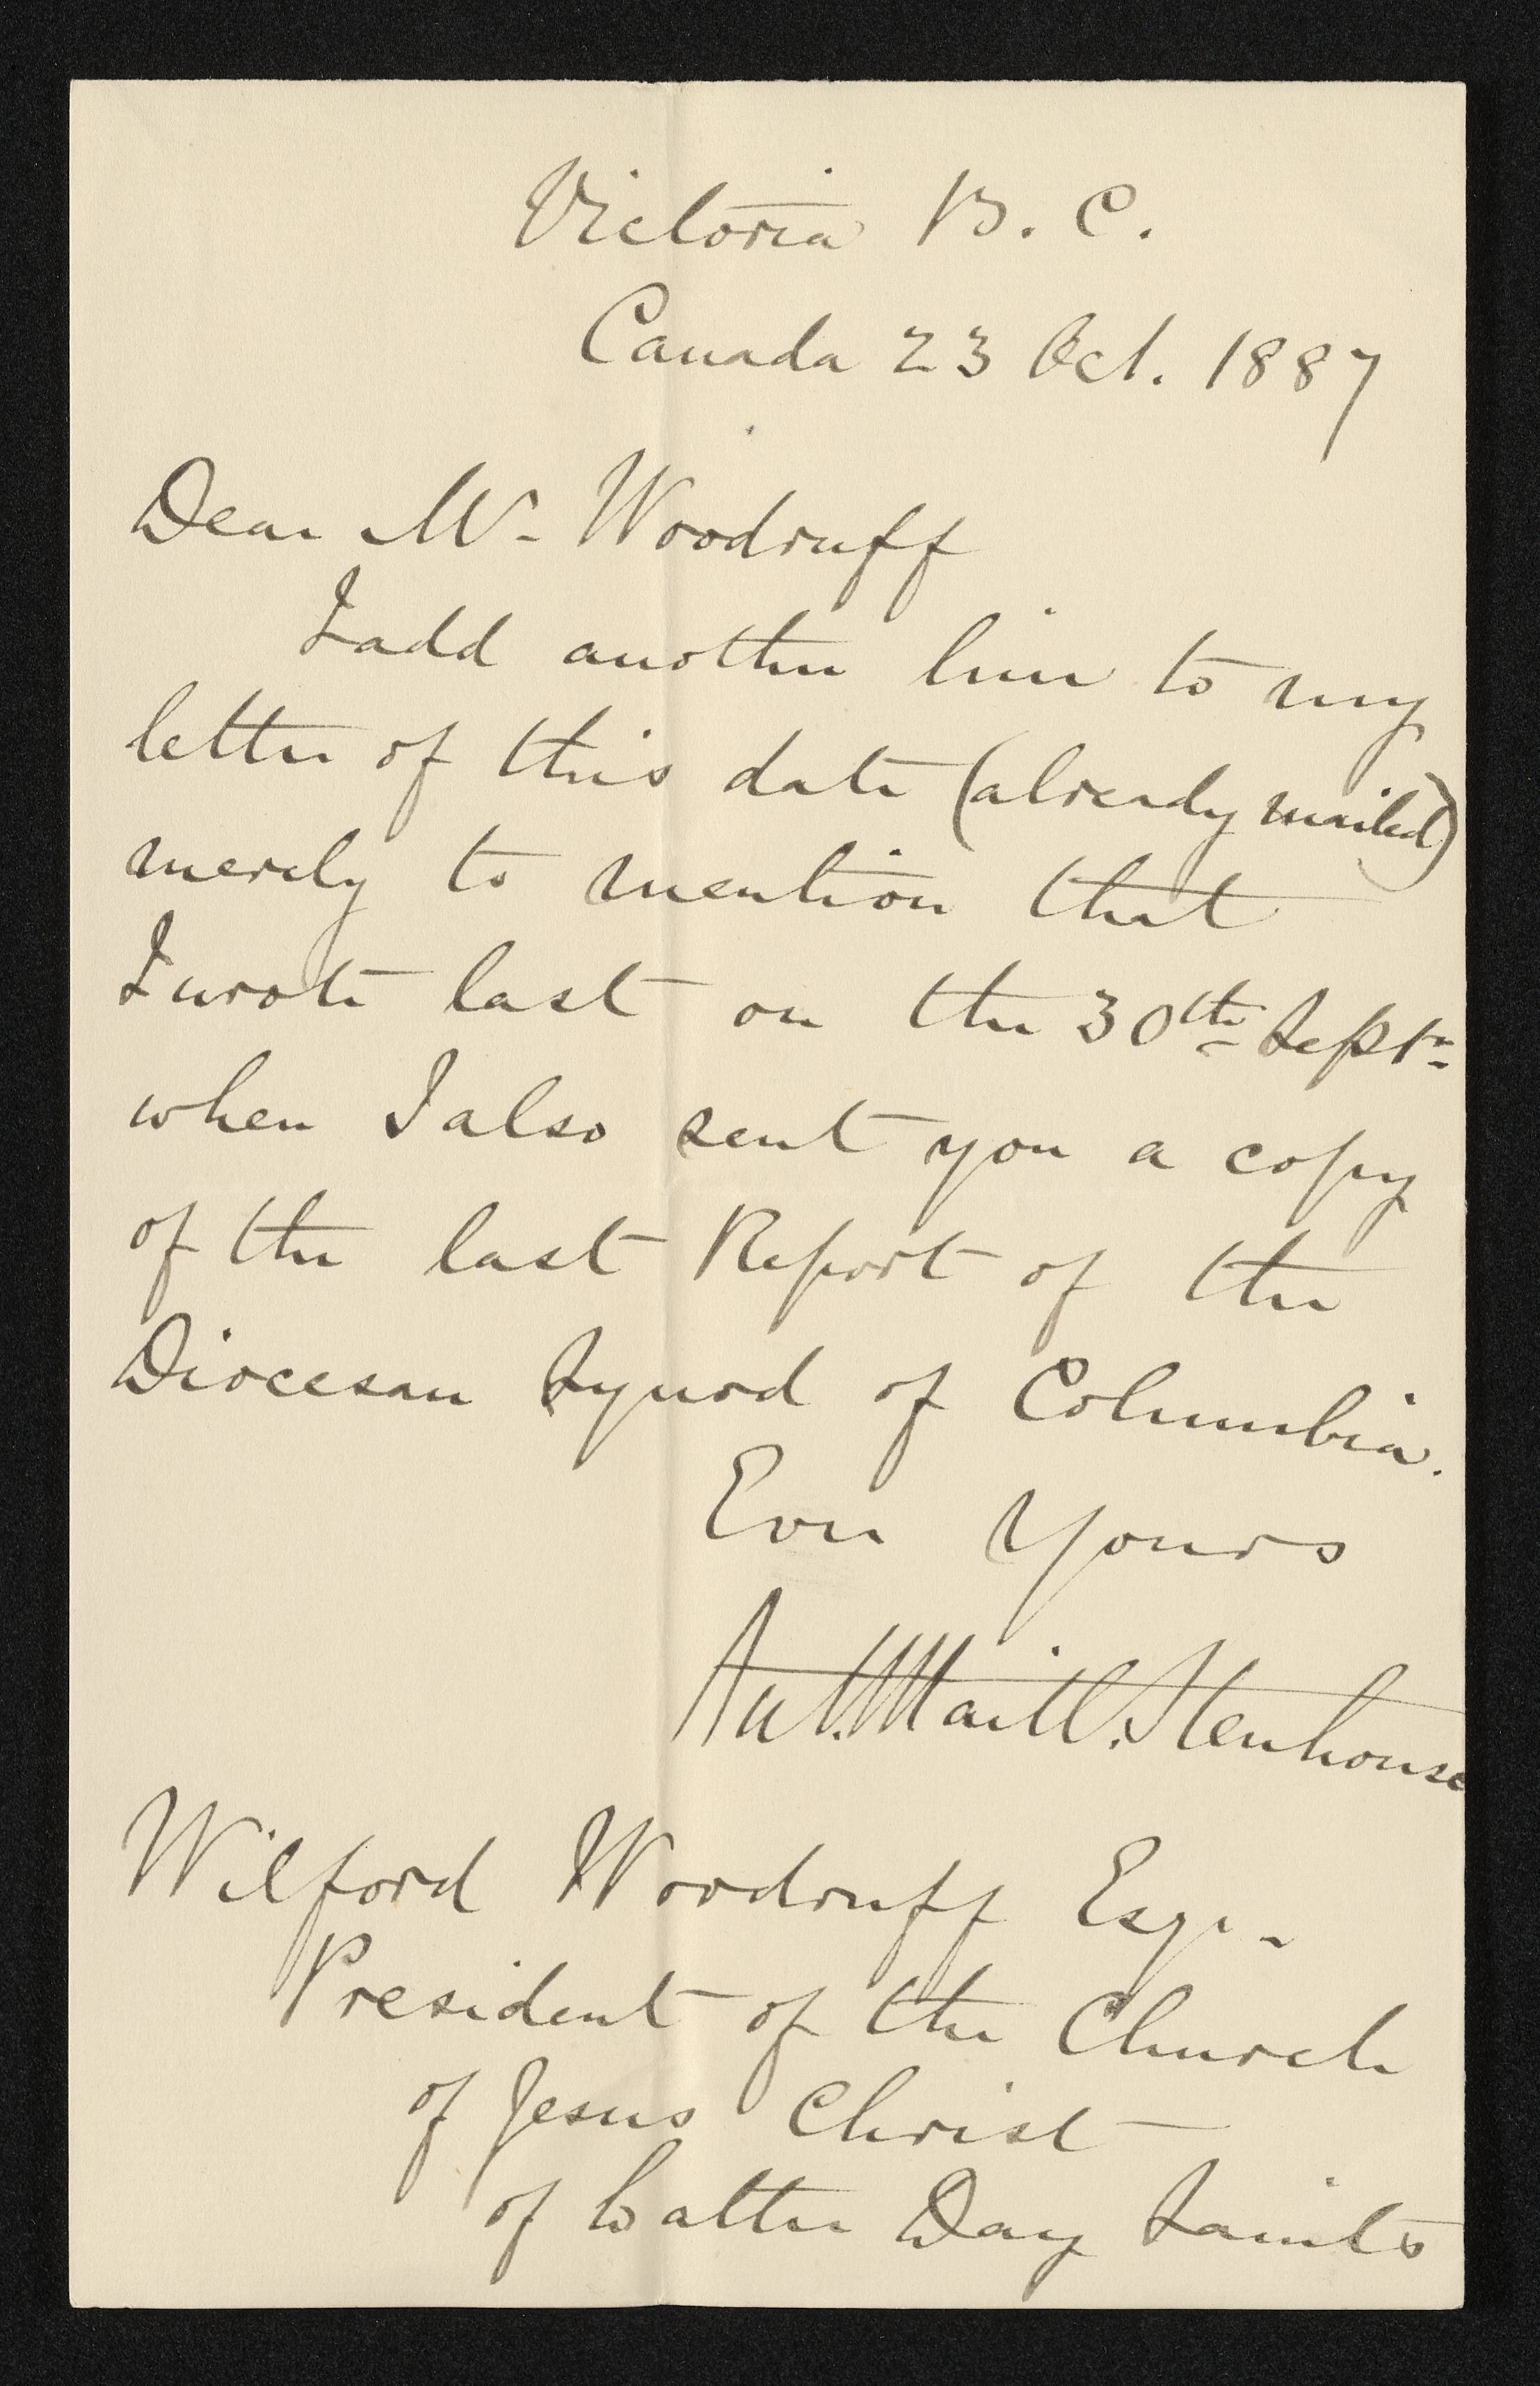 Victoria B. C.
Canada 23 Oct. 1887
Dear Mr. Woodruff
I add another line to my
letter of this date (already mailed)
merely to mention that
I wrote last on the 30th Septr.
when I also sent you a copy
of the last Report of the
Diocesan Synod of Columbia.
Ever Yours
Ant. Maitl. Stenhouse
Wilford Woodruff Esqr.
President of the Church
of Jesus Christ
of Latter Day Saints